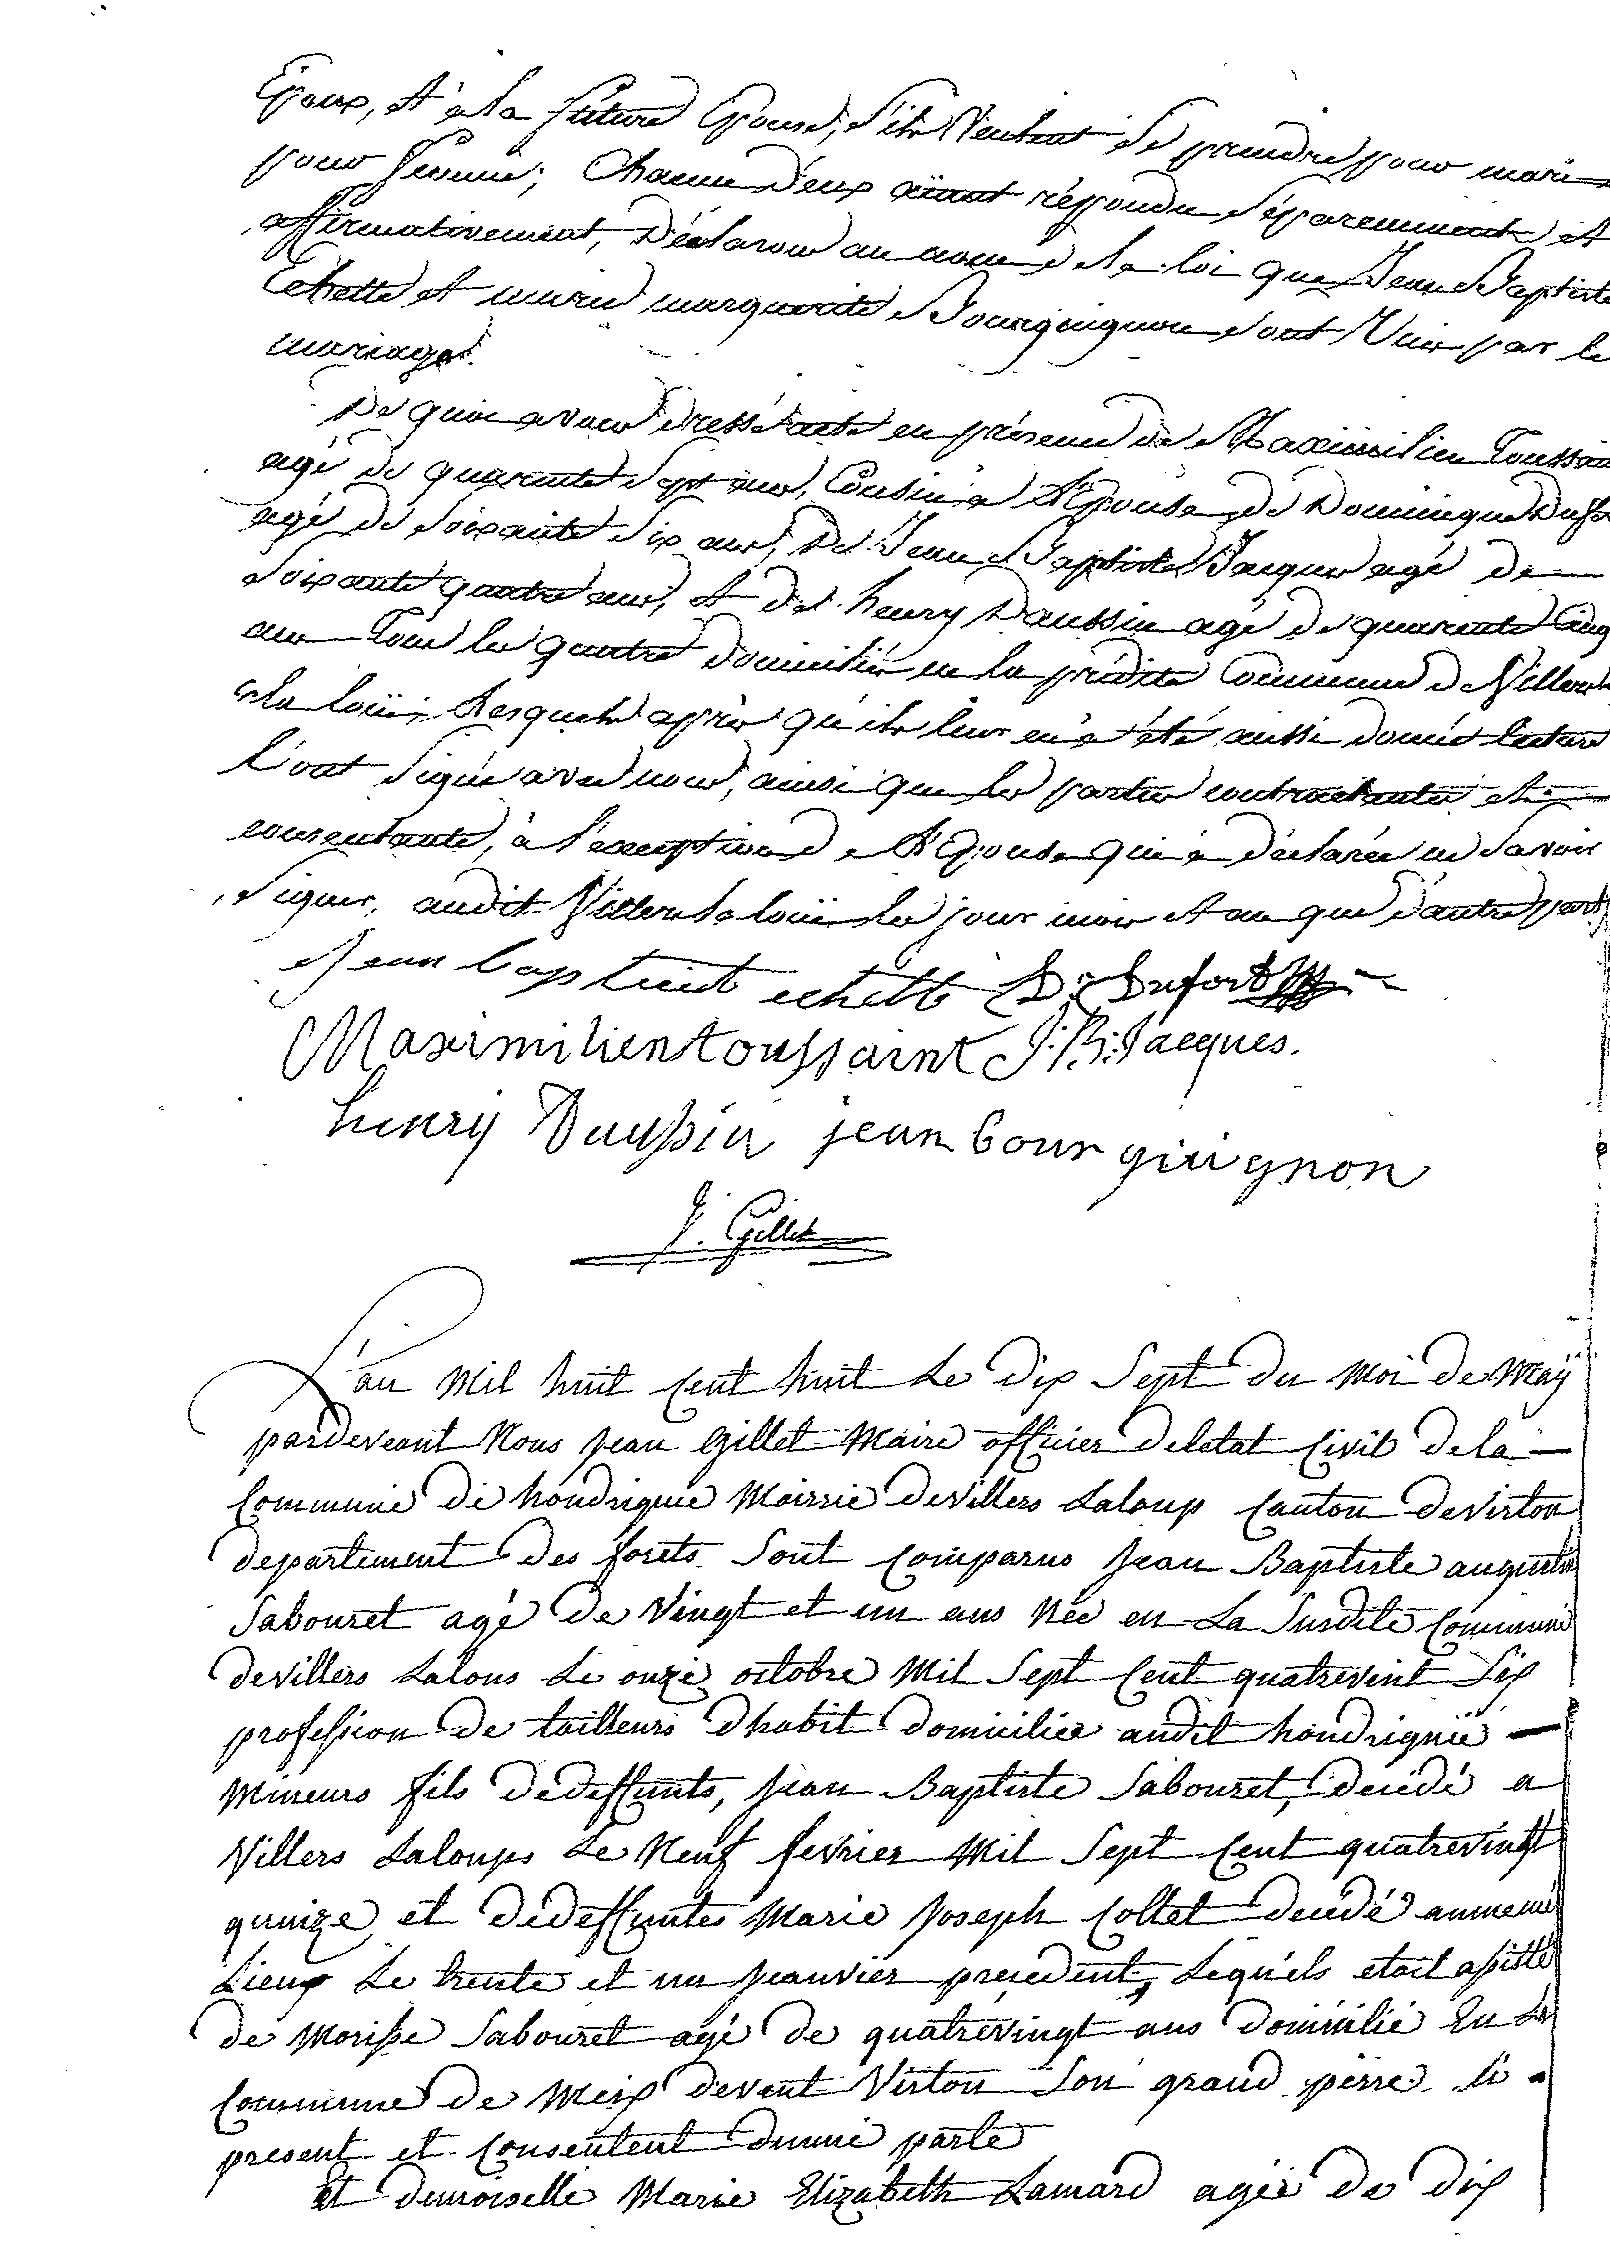 Epoux, et à la future Epouse, s'ils veulent se prendre pour mari
pour femme; chacun d'eux aïant répondu séparemment et
affirmativement, déclarons au nom de la loi que Jean Baptiste
Echette et marie marguerite Bourguignon sont unis par le
mariage.
De quoi avons dressé acte en présence de Maximilien Toussain
agé de quarante sept ans, Cousin à l'Epouse, de Dominique Dufo
agé de soixante six ans, de Jean Baptiste Jacques agé de
soixante quatre ans, et de henry Daussin agé de quarante cinq
ans Tous les quatre domiciliés en la prédite Commune de Villers
la loüe, lesquels après qu'ils leur en a été aussi donné lecture
l'ont signé avec nous, ainsi que les parties contractantes et
consentante, à l'exception de l'Epouse qui a déclarée ne savoir
signer, audit Villers la loüe les jour mois et an que d'autre part
Jean baptist echette D: Dufort
Maximilien toussaint J: B: Jacques.
henry Daussin jean bourguignon
J. Gillet
L'an Mil huit cent huit Le dix Sept du Moi de May
pardeveant Nous Jean Gillet Maire officier deletat Civil dela
Commune de houdrignie Mairrie devillers Laloup Canton devirton
departement des forets Sont Comparus Jean Baptiste augustin
Sabouret agé de Vingt et un ans Née en La Susdite Commune
devillers Lalous Le onze octobre Mil Sept Cent quatrevint Six
profession de tailleurs dhabit domiciliée audit houdrignie
Mineurs fils dedeffunts, Jean Baptiste Sabouret, decédé a
Villers Laloups Le Neuf fevrier Mil Sept Cent quatrevingt
quinze et dedeffuntes Marie Joseph Collet decédé aumeme
Lieux Le trente et un Jeanvier precedent, Lequels etoit assisté
de Morisse Sabouret agé de quatrevingt ans domicilié En La
Commune de Meix devent Virton Son grand perre si
present et Consentent dunne parte
Et demoiselle Marie Elizabeth Lamard agée de dix